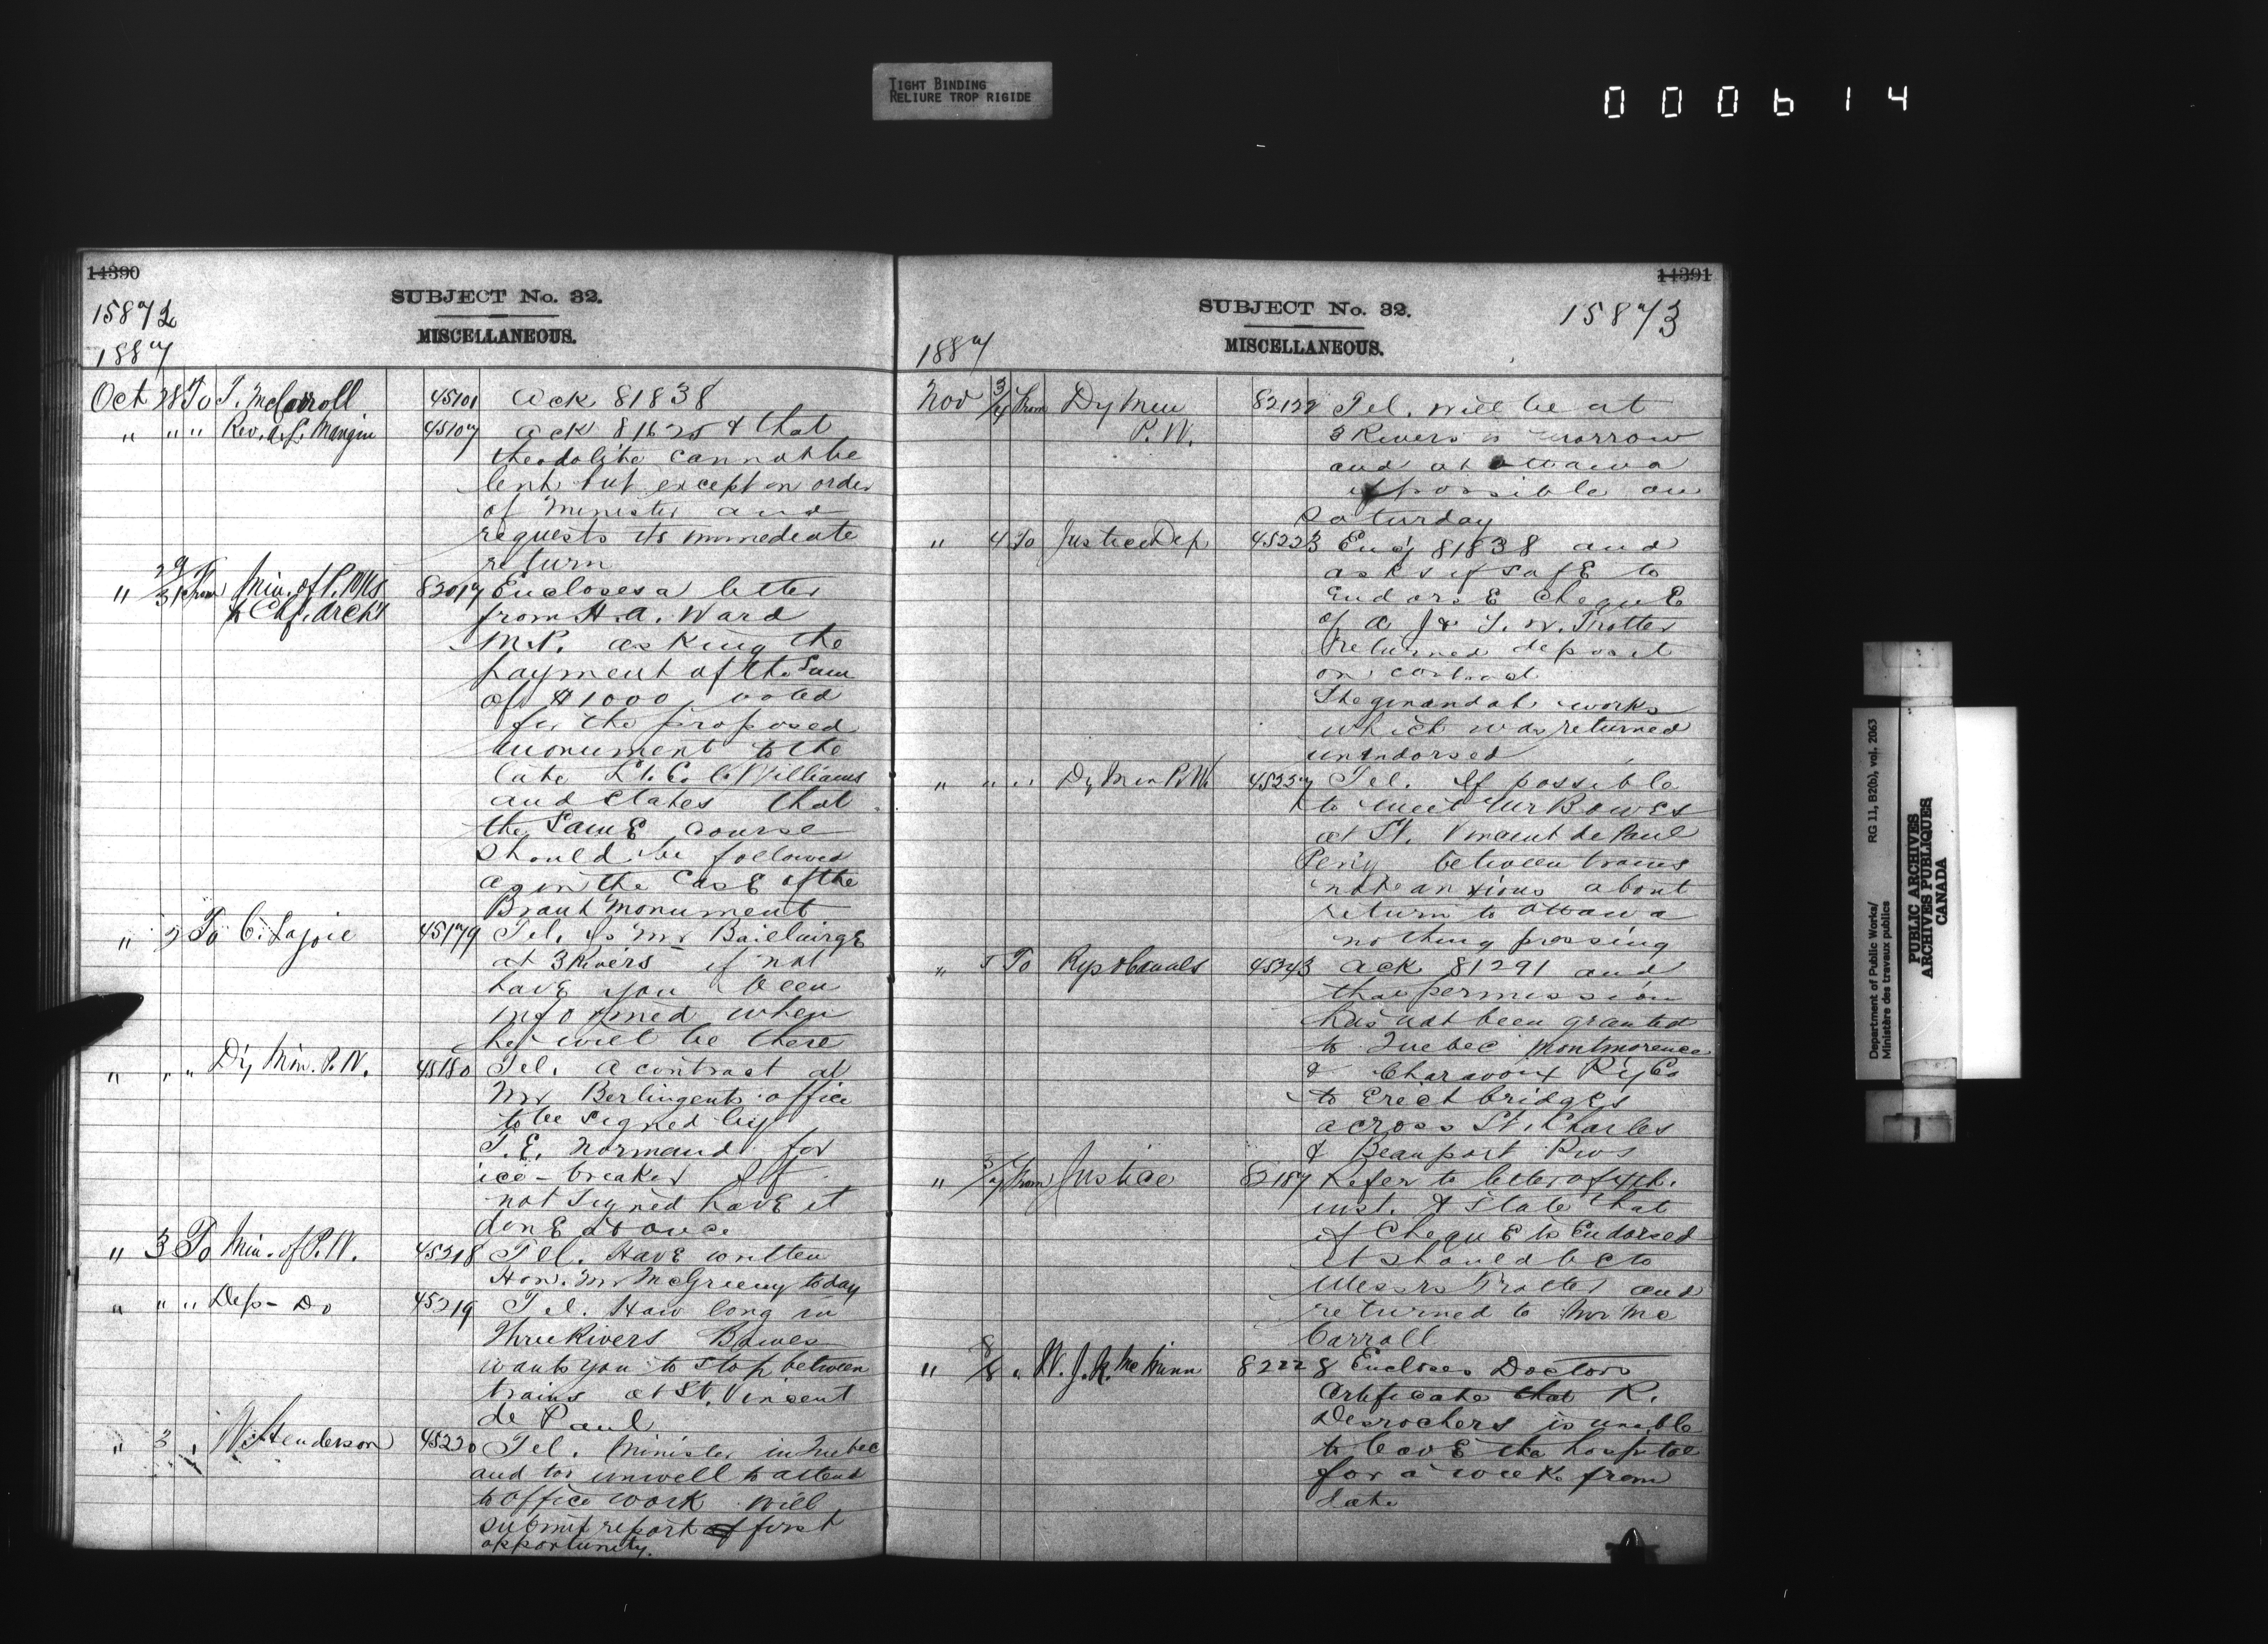 TIGHT BINDING
RELIURE TROP RIGIDE
000614
14390
SUBJECT No. 32.
15872
MISCELLANEOUS.
1887
Oct 28 To T. McCarroll 45101 Ack 81838
" " " Rev. A. L. Mangin 45107 ack 81625 & that
theodolite cannot be
lent but except on order
of Minister and
requests its immediate
return
" 29/31 From Min. of P. Wks 82017 Encloses a letter
to Chf. Archt from H. A. Ward
M.P. asking the
payment of the Sum
of $1000 voted
for the proposed
monument to the
late Lt. Col. Williams
and states that
the Same course
should be followed
as in the Case of the
Brant Monument
" 2 To C. Lajoie 45179 Tel. Is Mr Baillairge
at 3 Rivers if not
have you been
informed when
he will be there
" " " Dy Min. P. W. 45180 Tel. A contract at
Mr Berlinguets office
to be signed by
T. E. Normand for
ice-breaker If
not signed have it
done at once
" 3 To Min. of P. W. 45218 Tel. Have written
Hon. Mr McGreevy today
" " " Dep - Do 45219 Tel. How long in
Three Rivers Bowes
wants you to stop between
trains at St. Vincent
de Paul
" 3 " W. Henderson 45220 Tel. Minister in Quebec
and too unwell to attend
to office work will
submit report at first
opportunity.
14391
SUBJECT No. 32.
15873
MISCELLANEOUS.
1887
Nov 3/4 From Dy Min 82122 Tel. will be at
P. W. 3 Rivers morrow
and at Ottawa
if possible on
Saturday
" 4 To Justice Dep 45223 Encg 81838 and
asks if safe to
Endorse Cheque
of A J & T. W. Trotter
returned deposit
on contract
Sheguiandah works
which was returned
unindorsed
" " " Dy Min P. W. 45237 Tel. If possible
to meet Mr Bowes
at St. Vincent de Paul
Peny between trains
not be anxious about
return to Ottawa
nothing pressing
" 5 To Rys & Canals 45243 Ack 81291 and
that permission
has not been granted
to Quebec Montmorence
& Charavoix Ry Co
to Erect bridges
across St. Charles
& Beauport Rivs
" 5/7 From Justice 82187 Refer to letter of 4th.
inst. & state that
if Cheque is Endorsed
it should be to
Messrs Trotter and
returned to Mr Mc
Carroll
" 8/8 " W. J. R. McMinn 82228 Encloses Doctors
Certificate that R.
Desrochers is unable
to leave the hospital
for a week from
date
Department of Public Works/ RG 11, B2(b), vol. 2063
Ministère des travaux publics
PUBLIC ARCHIVES
ARCHIVES PUBLIQUES
CANADA